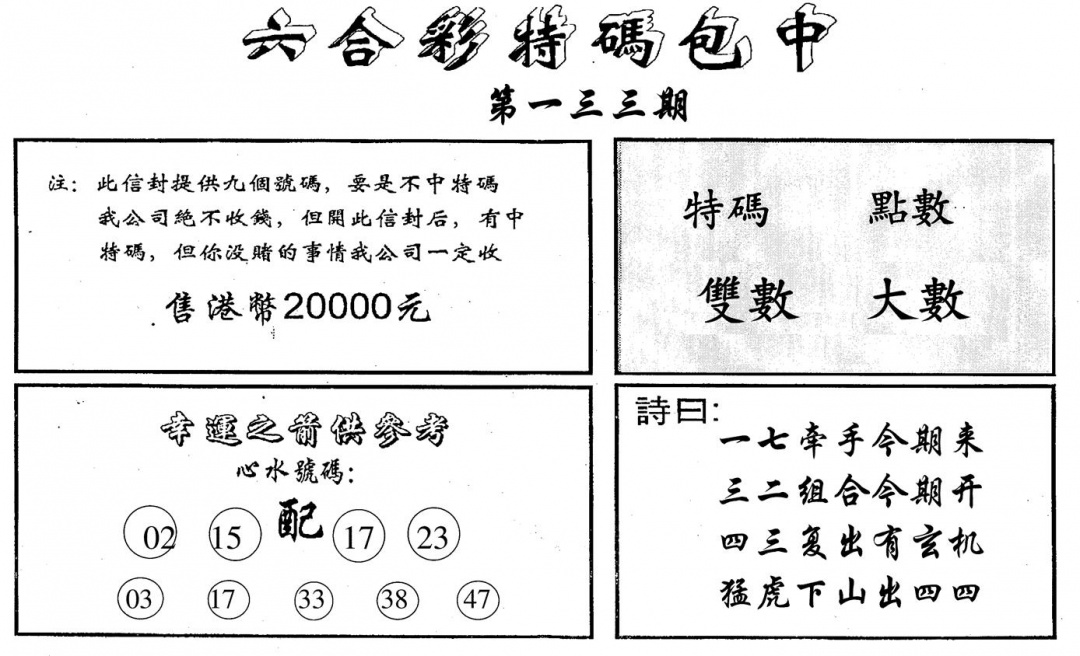 六合彩特碼包中
第一三三期
注：此信封提供九個號碼，要是不中特碼
我公司絶不收錢，但開此信封后，有中
特碼，但你没賭的事情我公司一定收
售港幣20000元
特碼 點數
雙數 大數
幸運之箭供參考
心水號碼：
配
02 15 17 23
03 17 33 38 47
詩曰：
一七牽手今期来
三二组合今期开
四三复出有玄机
猛虎下山出四四